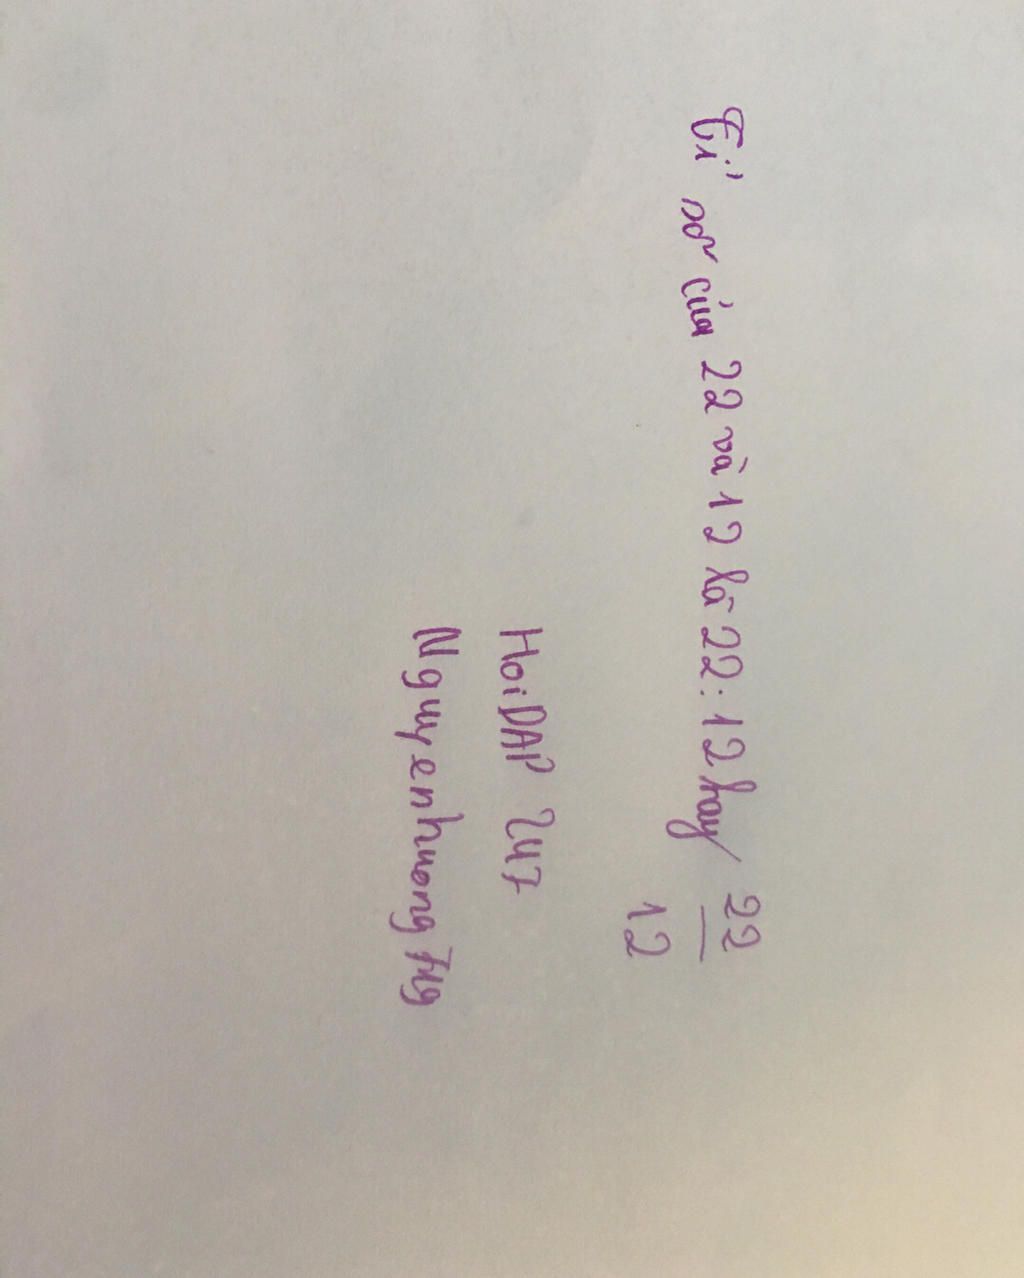 Tỉ số của 22 và 12 là 22:12 hay 22
12
HoiDAP 247
Nguyenhuong